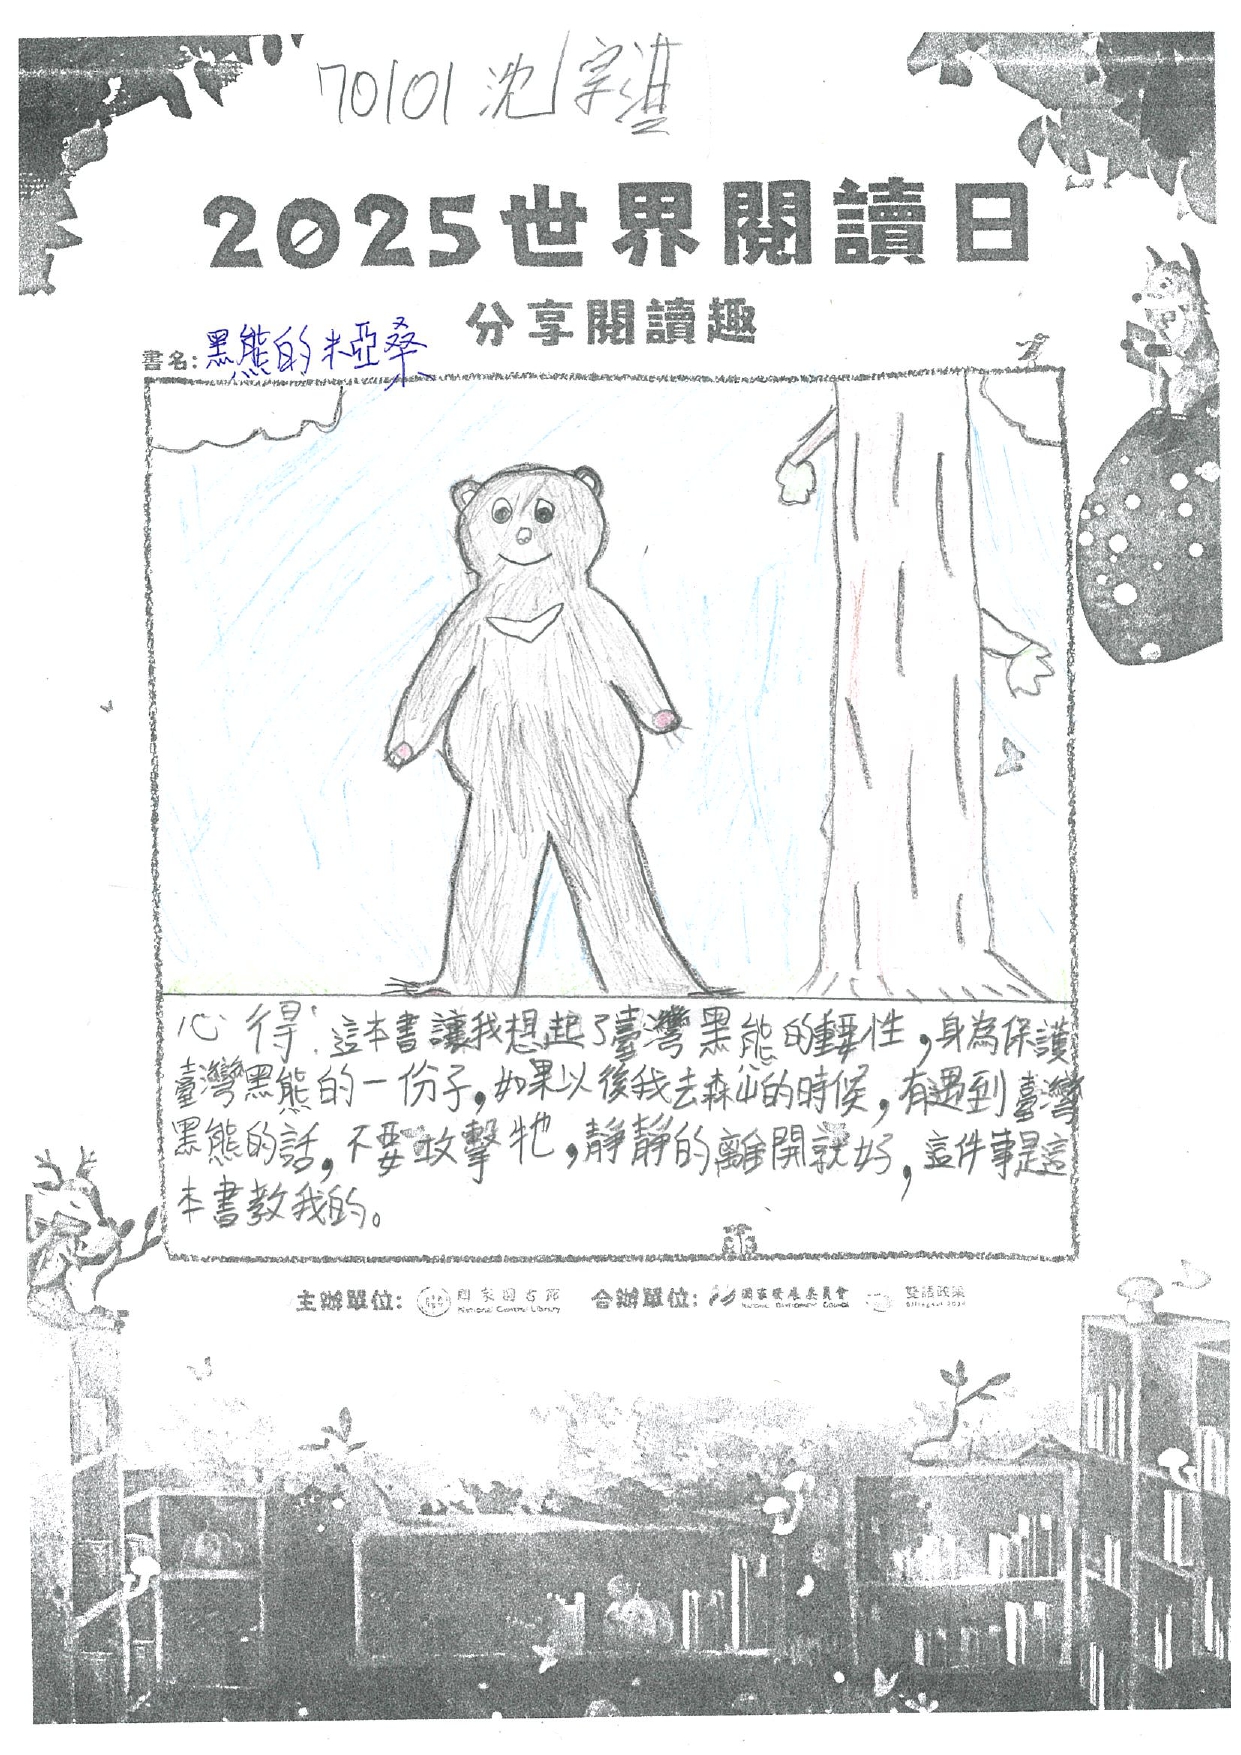 70101 沈宇淇
2025世界閱讀日
分享閱讀趣
書名: 黑熊的米亞桑
心得:這本書讓我想起了臺灣黑熊的重要性,身為保護
臺灣黑熊的一份子,如果以後我去森山的時候,有遇到臺灣
黑熊的話,不要攻擊牠,靜靜的離開就好,這件事是這
本書教我的。
主辦單位: 國家圖書館 National Central Library 合辦單位: 國家發展委員會 National Development Council 雙語政策